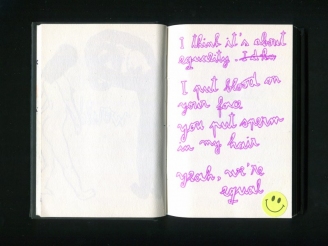 I think it's about
equality.
I put blood on
your face
you put sperm
in my hair
yeah, we're
equal